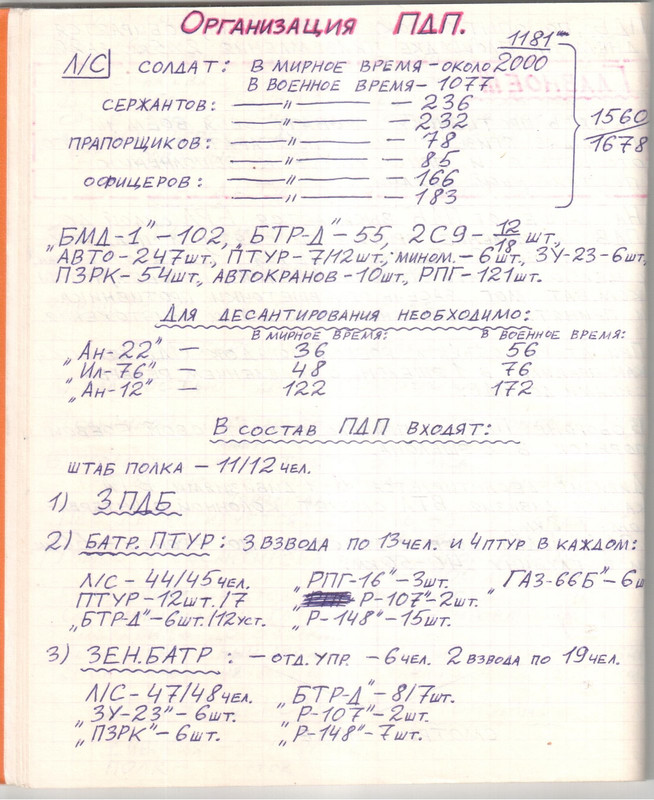 Организация ПДП.
Л/С солдат: в мирное время - около 2000 1181
в военное время - 1077
сержантов: —〃— - 236
—〃— - 232
прапорщиков: —〃— - 78
—〃— - 85
офицеров: —〃— - 166
—〃— - 183
1560/1678
„БМД-1" - 102, „БТР-Д" - 55, 2С9 - 12/18 шт,
АВТО - 247шт., ПТУР - 7/12шт., мином. - 6шт., ЗУ-23 - 6шт,
ПЗРК - 54шт, АВТОКРАНОВ - 10шт., РПГ - 121шт.
Для десантирования необходимо:
в мирное время: в военное время:
„Ан-22" - 36 56
„Ил-76" - 48 76
„Ан-12" - 122 172
В состав ПДП входят:
штаб полка - 11/12 чел.
1) 3 ПДБ
2) БАТР. ПТУР: 3 взвода по 13чел. и 4 птур в каждом:
Л/С - 44/45чел. „РПГ-16" - 3шт. „ГАЗ-66Б" - 6ш
ПТУР - 12шт./7 Р-107" - 2шт.
„БТР-Д" - 6шт./12уст. „Р-148" - 15шт.
3) ЗЕН.БАТР: - отд. упр. - 6чел. 2 взвода по 19 чел.
Л/С - 47/48чел. „БТР-Д" - 8/7шт.
„ЗУ-23" - 6шт. „Р-107" - 2шт.
„ПЗРК" - 6шт. „Р-148" - 7шт.